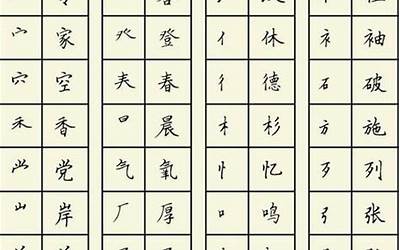 宀 家 癶 登 亻 休 衤 袖
穴 空 𡗗 春 彳 德 石 破
禾 香 日 晨 木 杉 方 施
龸 党 气 氧 忄 忆 歹 列
山 岸 厂 厚 口 鸣 弓 张